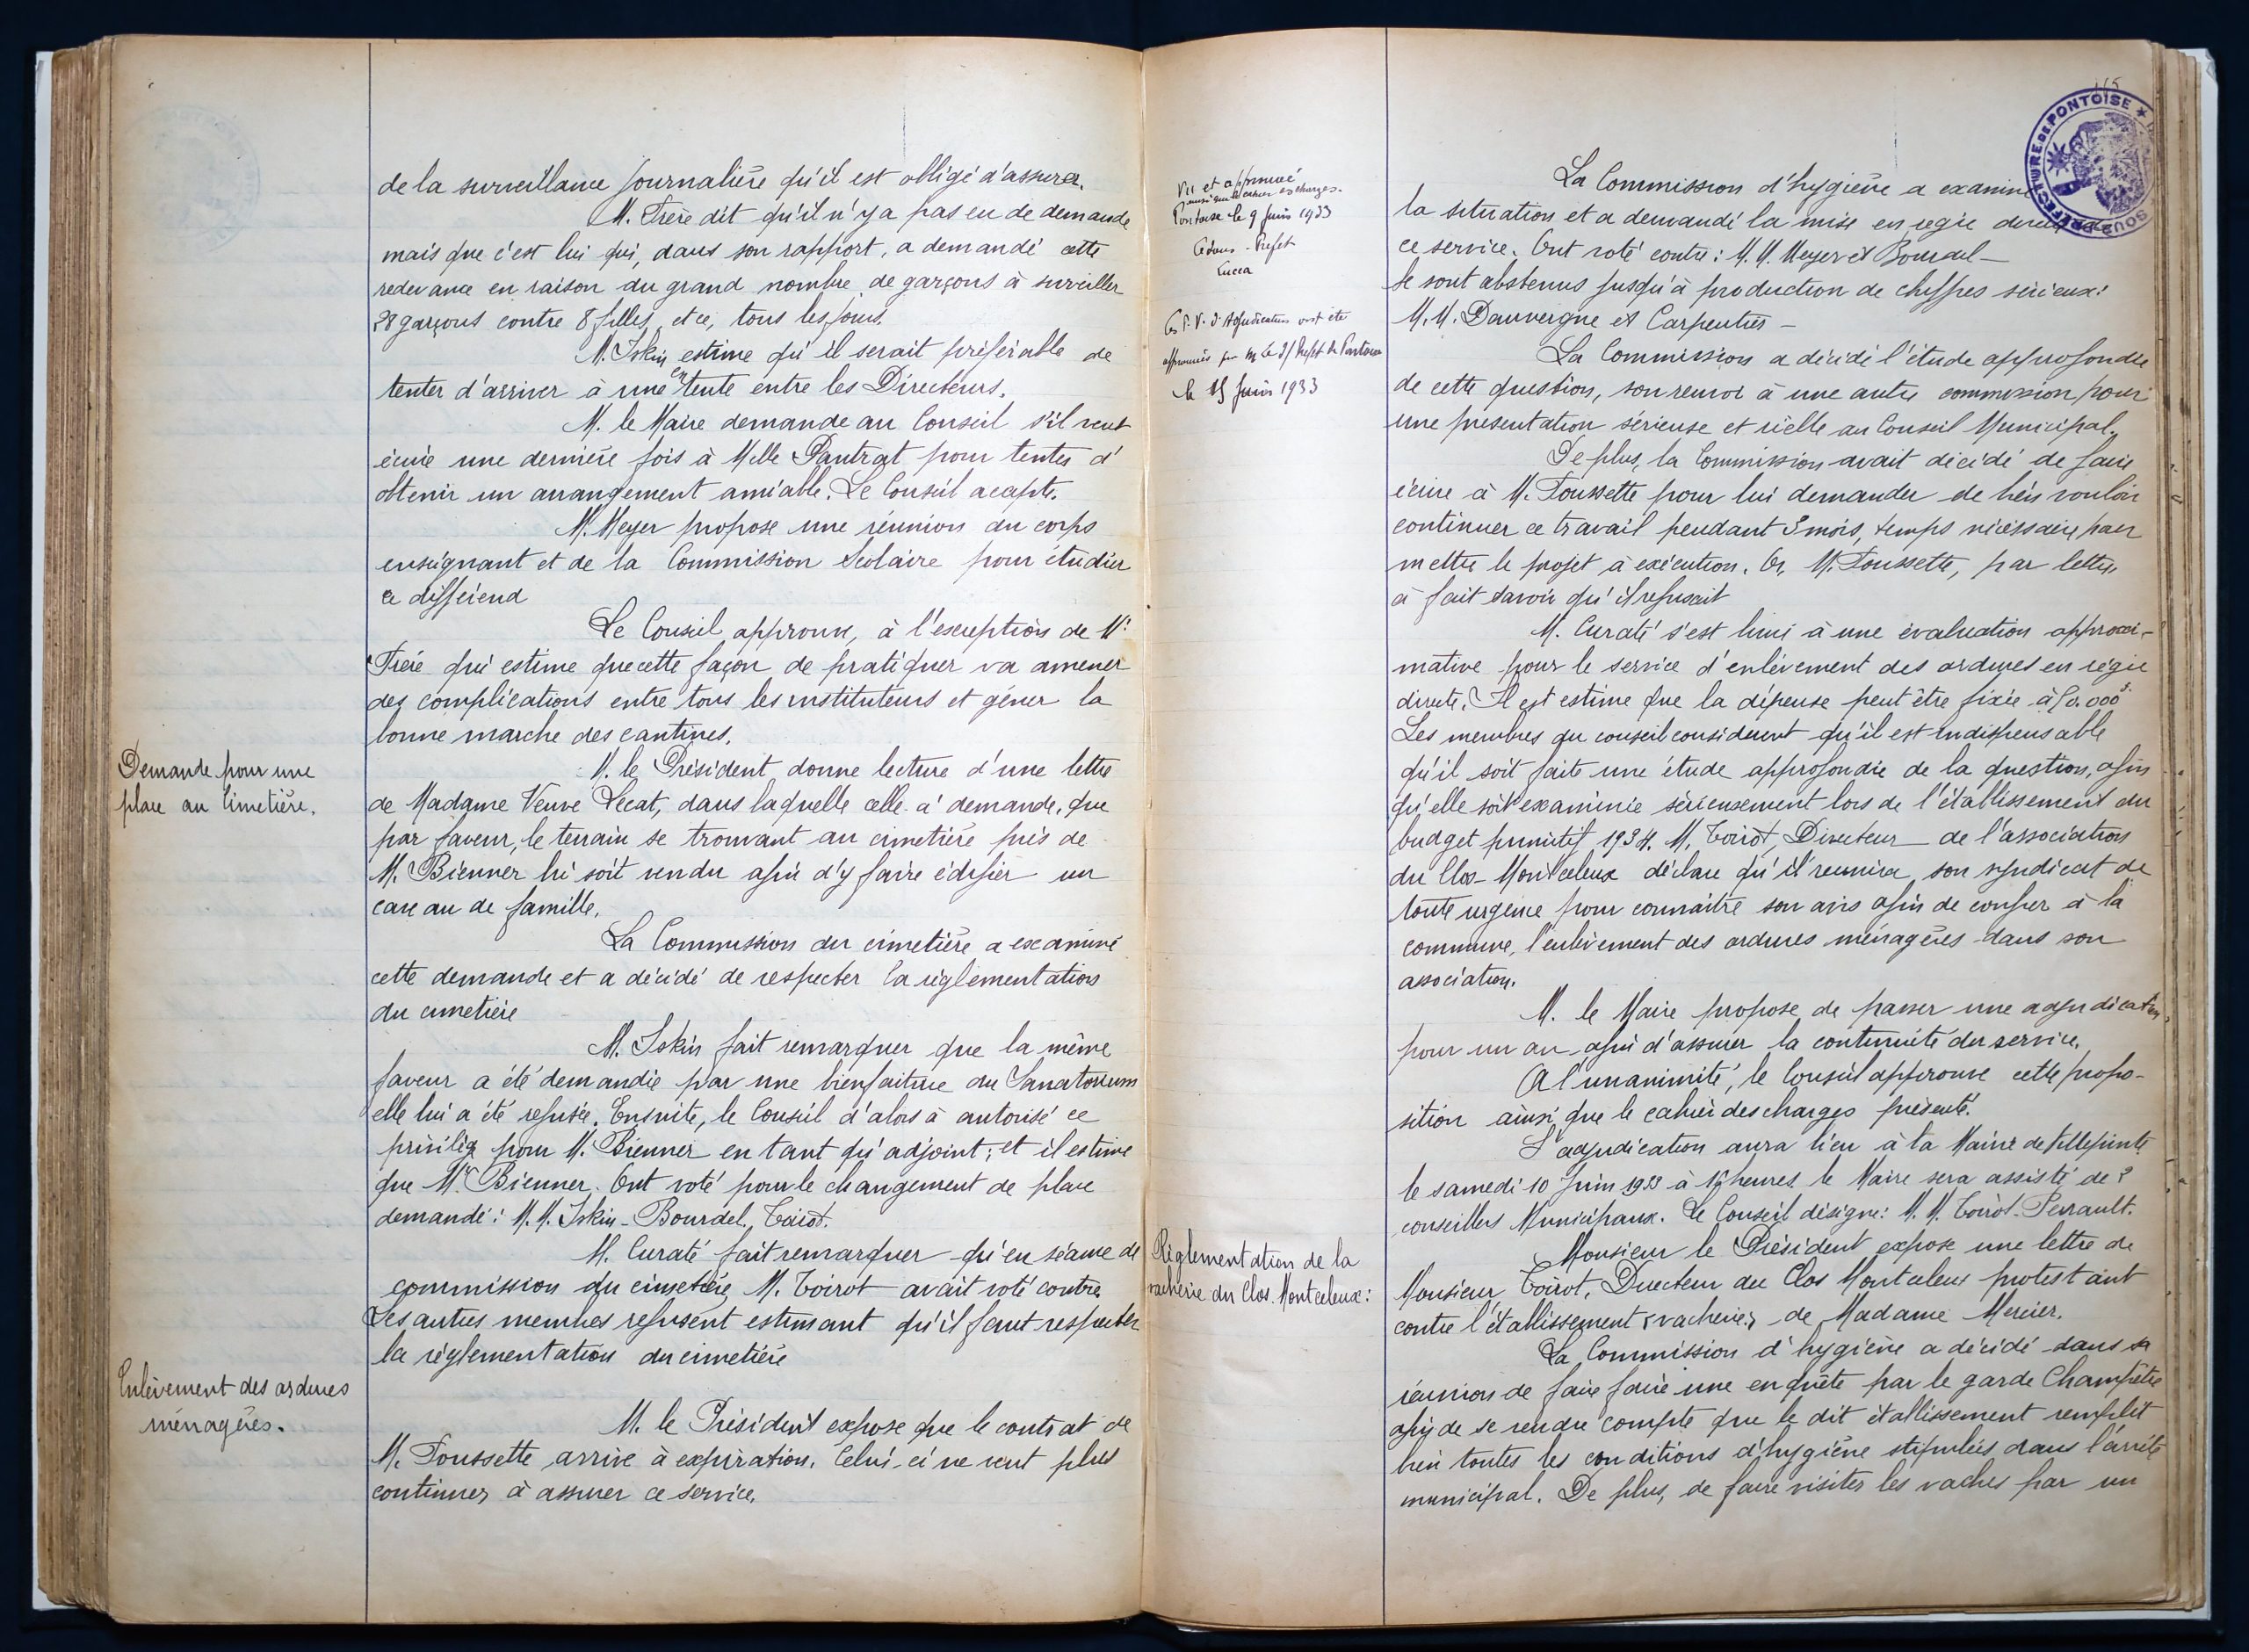 de la surveillance journalière qu'il est obligé d'assurer.
M. Frère dit qu'il n'y a pas eu de demande
mais que c'est lui qui, dans son rapport, a demandé cette
redevance en raison du grand nombre de garçons à surveiller
28 garçons contre 8 filles, et ce, tous les jours.
M. Iskin estime qu'il serait préférable de
tenter d'arriver à une entente entre les Directeurs.
M. le Maire demande au Conseil s'il veut
écrire une dernière fois à Melle Pautrat pour tenter d'
obtenir un arrangement amiable. Le Conseil accepte.
M. Meyer propose une réunion du corps
enseignant et de la Commission Scolaire pour étudier
ce différend
Le Conseil approuve, à l'exception de Mr
Frère qui estime que cette façon de pratiquer va amener
des complications entre tous les instituteurs et gêner la
bonne marche des cantines.
Demande pour une
place au Cimetière.
M. le Président donne lecture d'une lettre
de Madame Veuve Lecat, dans laquelle celle-ci demande, que
par faveur, le terrain se trouvant au cimetière près de
M. Bienner lui soit vendu afin d'y faire édifier un
caveau de famille.
La Commission du cimetière a examiné
cette demande et a décidé de respecter la réglementation
du cimetière
M. Iskin fait remarquer que la même
faveur a été demandée par une bienfaitrice du Sanatorium
elle lui a été refusée. Ensuite, le Conseil d'alors à autorisé ce
privilège pour M. Bienner en tant qu'adjoint; et il estime
que Mr Bienner. Ont voté pour le changement de place
demandé: M.M. Iskin - Bourdel, Toirot.
M. Curaté fait remarquer qu'en séance de
commission du cimetière M. Toirot avait voté contre
Les autres membres refusent estimant qu'il faut respecter
la réglementation du cimetière
Enlèvement des ordures
ménagères.
M. le Président expose que le contrat de
M. Foussette arrive à expiration. Celui-ci ne veut plus
continuer à assurer ce service.
SOUS-PREFECTURE DE PONTOISE
Vu et approuvé
ainsi que le cahier des charges.
Pontoise le 9 Juin 1933
Le Sous-Préfet
Lucca
Ces P.V. d'Adjudication ont été
approuvés par M. le S/Préfet de Pontoise
le 15 Juin 1933
La Commission d'hygiène a examiné
la situation et a demandé la mise en régie directe de
ce service. Ont voté contre: M.M. Meyer et Bourdel -
Se sont abstenus jusqu'à production de chiffres sérieux:
M.M. Dauvergne et Carpentier -
La Commission a décidé l'étude approfondie
de cette question, son renvoi à une autre commission pour
une présentation sérieuse et réelle au Conseil Municipal.
De plus, la Commission avait décidé de faire
écrire à M. Foussette pour lui demander de bien vouloir
continuer ce travail pendant 3 mois, temps nécessaire pour
mettre le projet à exécution. Or, M. Foussette, par lettre,
à fait savoir qu'il refusait
M. Curaté s'est livré à une évaluation approxi-
mative pour le service d'enlèvement des ordures en régie
directe. Il est estimé que la dépense peut être fixée à
Les membres du conseil considèrent qu'il est indispensable
qu'il soit faite une étude approfondie de la question, afin
qu'elle soit examinée sérieusement lors de l'établissement du
budget primitif 1934. M. Toirot, Directeur de l'association
du Clos-Montceleux déclare qu'il réunira son syndicat de
toute urgence pour connaître son avis afin de confier à la
commune, l'enlèvement des ordures ménagères dans son
association.
M. le Maire propose de passer une adjudication,
pour un an, afin d'assurer la continuité du service.
A l'unanimité, le Conseil approuve cette propo-
sition ainsi que le cahier des charges présenté.
L'adjudication aura lieu à la Mairie de Villepinte
le samedi 10 Juin 1933 à heures le Maire sera assisté de 2
conseillers Municipaux. Le Conseil désigne: M.M. Toirot-Perrault.
Réglementation de la
vacherie du Clos Montceleux:
Monsieur le Président expose une lettre de
Monsieur Toirot, Directeur du Clos Montceleux protestant
contre l'établissement "vacherie" de Madame Mercier.
La Commission d'hygiène a décidé dans sa
réunion de faire faire une enquête par le garde Champêtre
afin de se rendre compte que le dit établissement remplit
bien toutes les conditions d'hygiène stipulées dans l'arrêté
municipal. De plus, de faire visiter les vaches par un